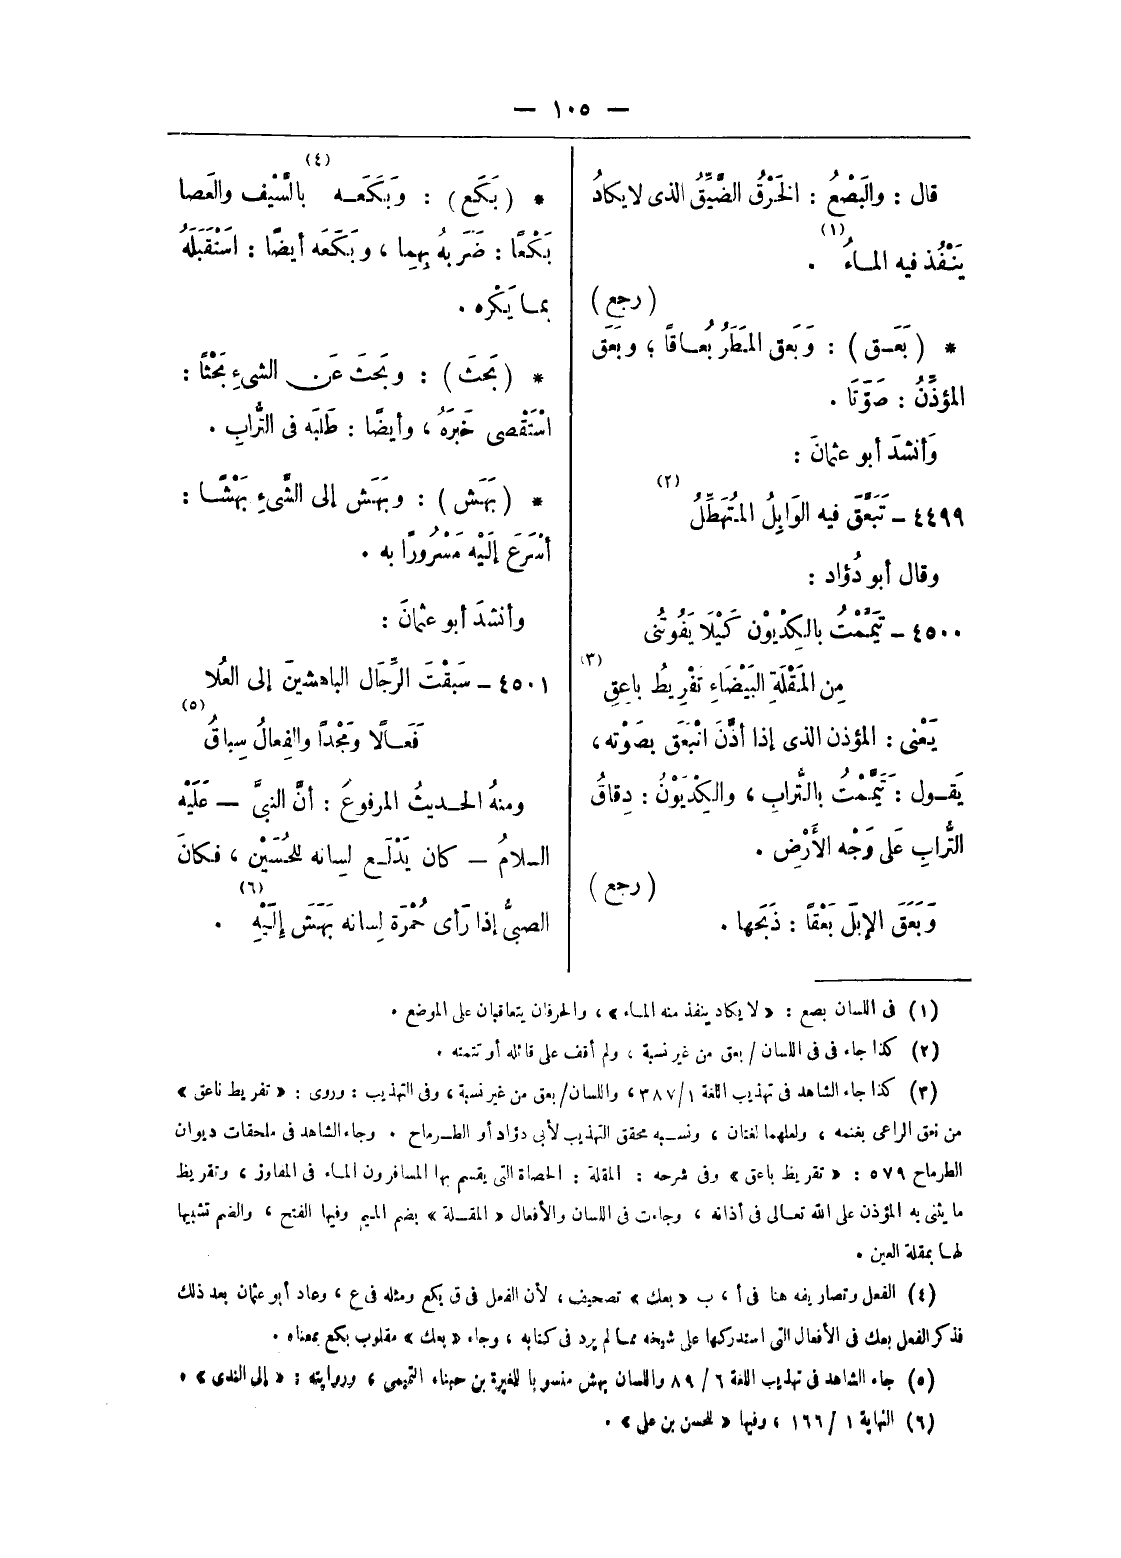 — ١٠٥ —
قال : والبَصْعُ : الخَرْقُ الضَّيِّقُ الذى لا يكادُ
يَنْفُذ فيه المـاءُ (١) .
( رجع )
* ( بَعَـق ) : وَبَعَق المَطَرُ بُعـاقًا ؛ وبَعَق
المؤذِّنُ : صَوَّتَا .
وَأنشدَ أبو عثمانَ :
٤٤٩٩ ـ تَبَعَّقَ فيه الوَابِلُ المُتَهَطِّلُ (٢)
وقال أبو دُؤاد :
٤٥٠٠ ـ تَيَمَّمْتُ بالكِدْيَوْن كَيْلَا يَفُوتُنى
مِن المَقْلَةِ البَيْضَاءِ تَفْرِيطُ باعِقِ (٣)
يَعْنى : المؤذن الذى إذا أذَّنَ انْبَعَق بصَوْته ،
يَقـول : تَيَمَّمْتُ بالتُّرابِ ، والكِدْيَوْنُ : دِقاقُ
التُّرابِ عَلَى وَجْه الأَرْضِ .
( رجع )
وَبَعَقَ الإبِلَ بَعْقاً : ذَبَحَها .
* ( بَكَع ) : وَبَكَعَـه (٤) بالسَّيْف والعَصا
بَكْعًا : ضَرَبهُ بِهِما ، وبَكَعَه أيضًا : اسْتَقْبَلَهُ
بمـا يَكْره .
* ( بَحَثَ ) : وبَحَثَ عَن الشىءِ بَحْثًا :
اسْتَقْصى خَبَرَهُ ، وأيضًا : طَلَبَه فى التُّرابِ .
* ( بَهَش ) : وبَهَش إلى الشَّىءِ بَهْشًـا :
أسْرَعَ إلَيْه مَسْرُورًا به .
وأنشدَ أبو عثمانَ :
٤٥٠١ ـ سَبقْتَ الرِّجَال الباهشينَ إلى العُلا
فَعَـالًا ومَجْدًا والفِعالُ سِباقُ (٥)
ومنهُ الحـديثُ المرفوعُ : أنَّ النبىَّ — عَلَيْه
السلامُ — كان يَدْلَـع لِسانه للحُسَيْن ، فـكانَ
الصبىُّ إذا رَأى حُمْرَة لِسانه بَهَشَ إلَيْهِ (٦) .
(١) فى اللسان بصع : « لا يكاد ينفذ منه المـاء » ، والحرفان يتعاقبان على الموضع .
(٢) كذا جاء فى فى اللسان / بعق من غير نسبة ، ولم أقف على قائله أو تتمته .
(٣) كذا جاء الشاهد فى تهذيب اللغة ١/ ٣٨٧ ، واللسان/ بعق من غير نسبة ، وفى التهذيب : وروى : « تفريط ناعق »
من نعق الراعى بغنمه ، ولعلهما لغتان ، ونسـبه محقق التهذيب لأبى دؤاد أو الطـرماح . وجاء الشاهد فى ملحقات ديوان
الطرماح ٥٧٩ : « تقريظ باعق » وفى شرحه : المقلة : الحصاة التى يقسم بها المسافرون المـاء فى المفاوز ، وتقريظ
ما يثنى به المؤذن على الله تعـالى فى أذانه ، وجاءت فى اللسان والأفعال « المقـلة » بضم الميم وفيها الفتح ، والضم تشبيها
لهـا بمقلة العين .
(٤) الفعل وتصاريفه هنا فى أ ، ب « بعك » تصحيف ، لأن الفعل فى ق بكع ومثله فى ع ، وعاد أبو عثمان بعد ذلك
فذكر الفعل بعك فى الأفعال التى استدركها على شيخه ممـا لم يرد فى كتابه ، وجاء « بعك » مقلوب بكع بمعناه .
(٥) جاء الشاهد فى تهذيب اللغة ٦ / ٨٩ واللسان بهش منسوبا للمغيرة بن حبناء التميمى ، وروايته : « إلى الندى » .
(٦) النهاية ١ / ١٦٦ ، وفيها « للحسن بن على » .